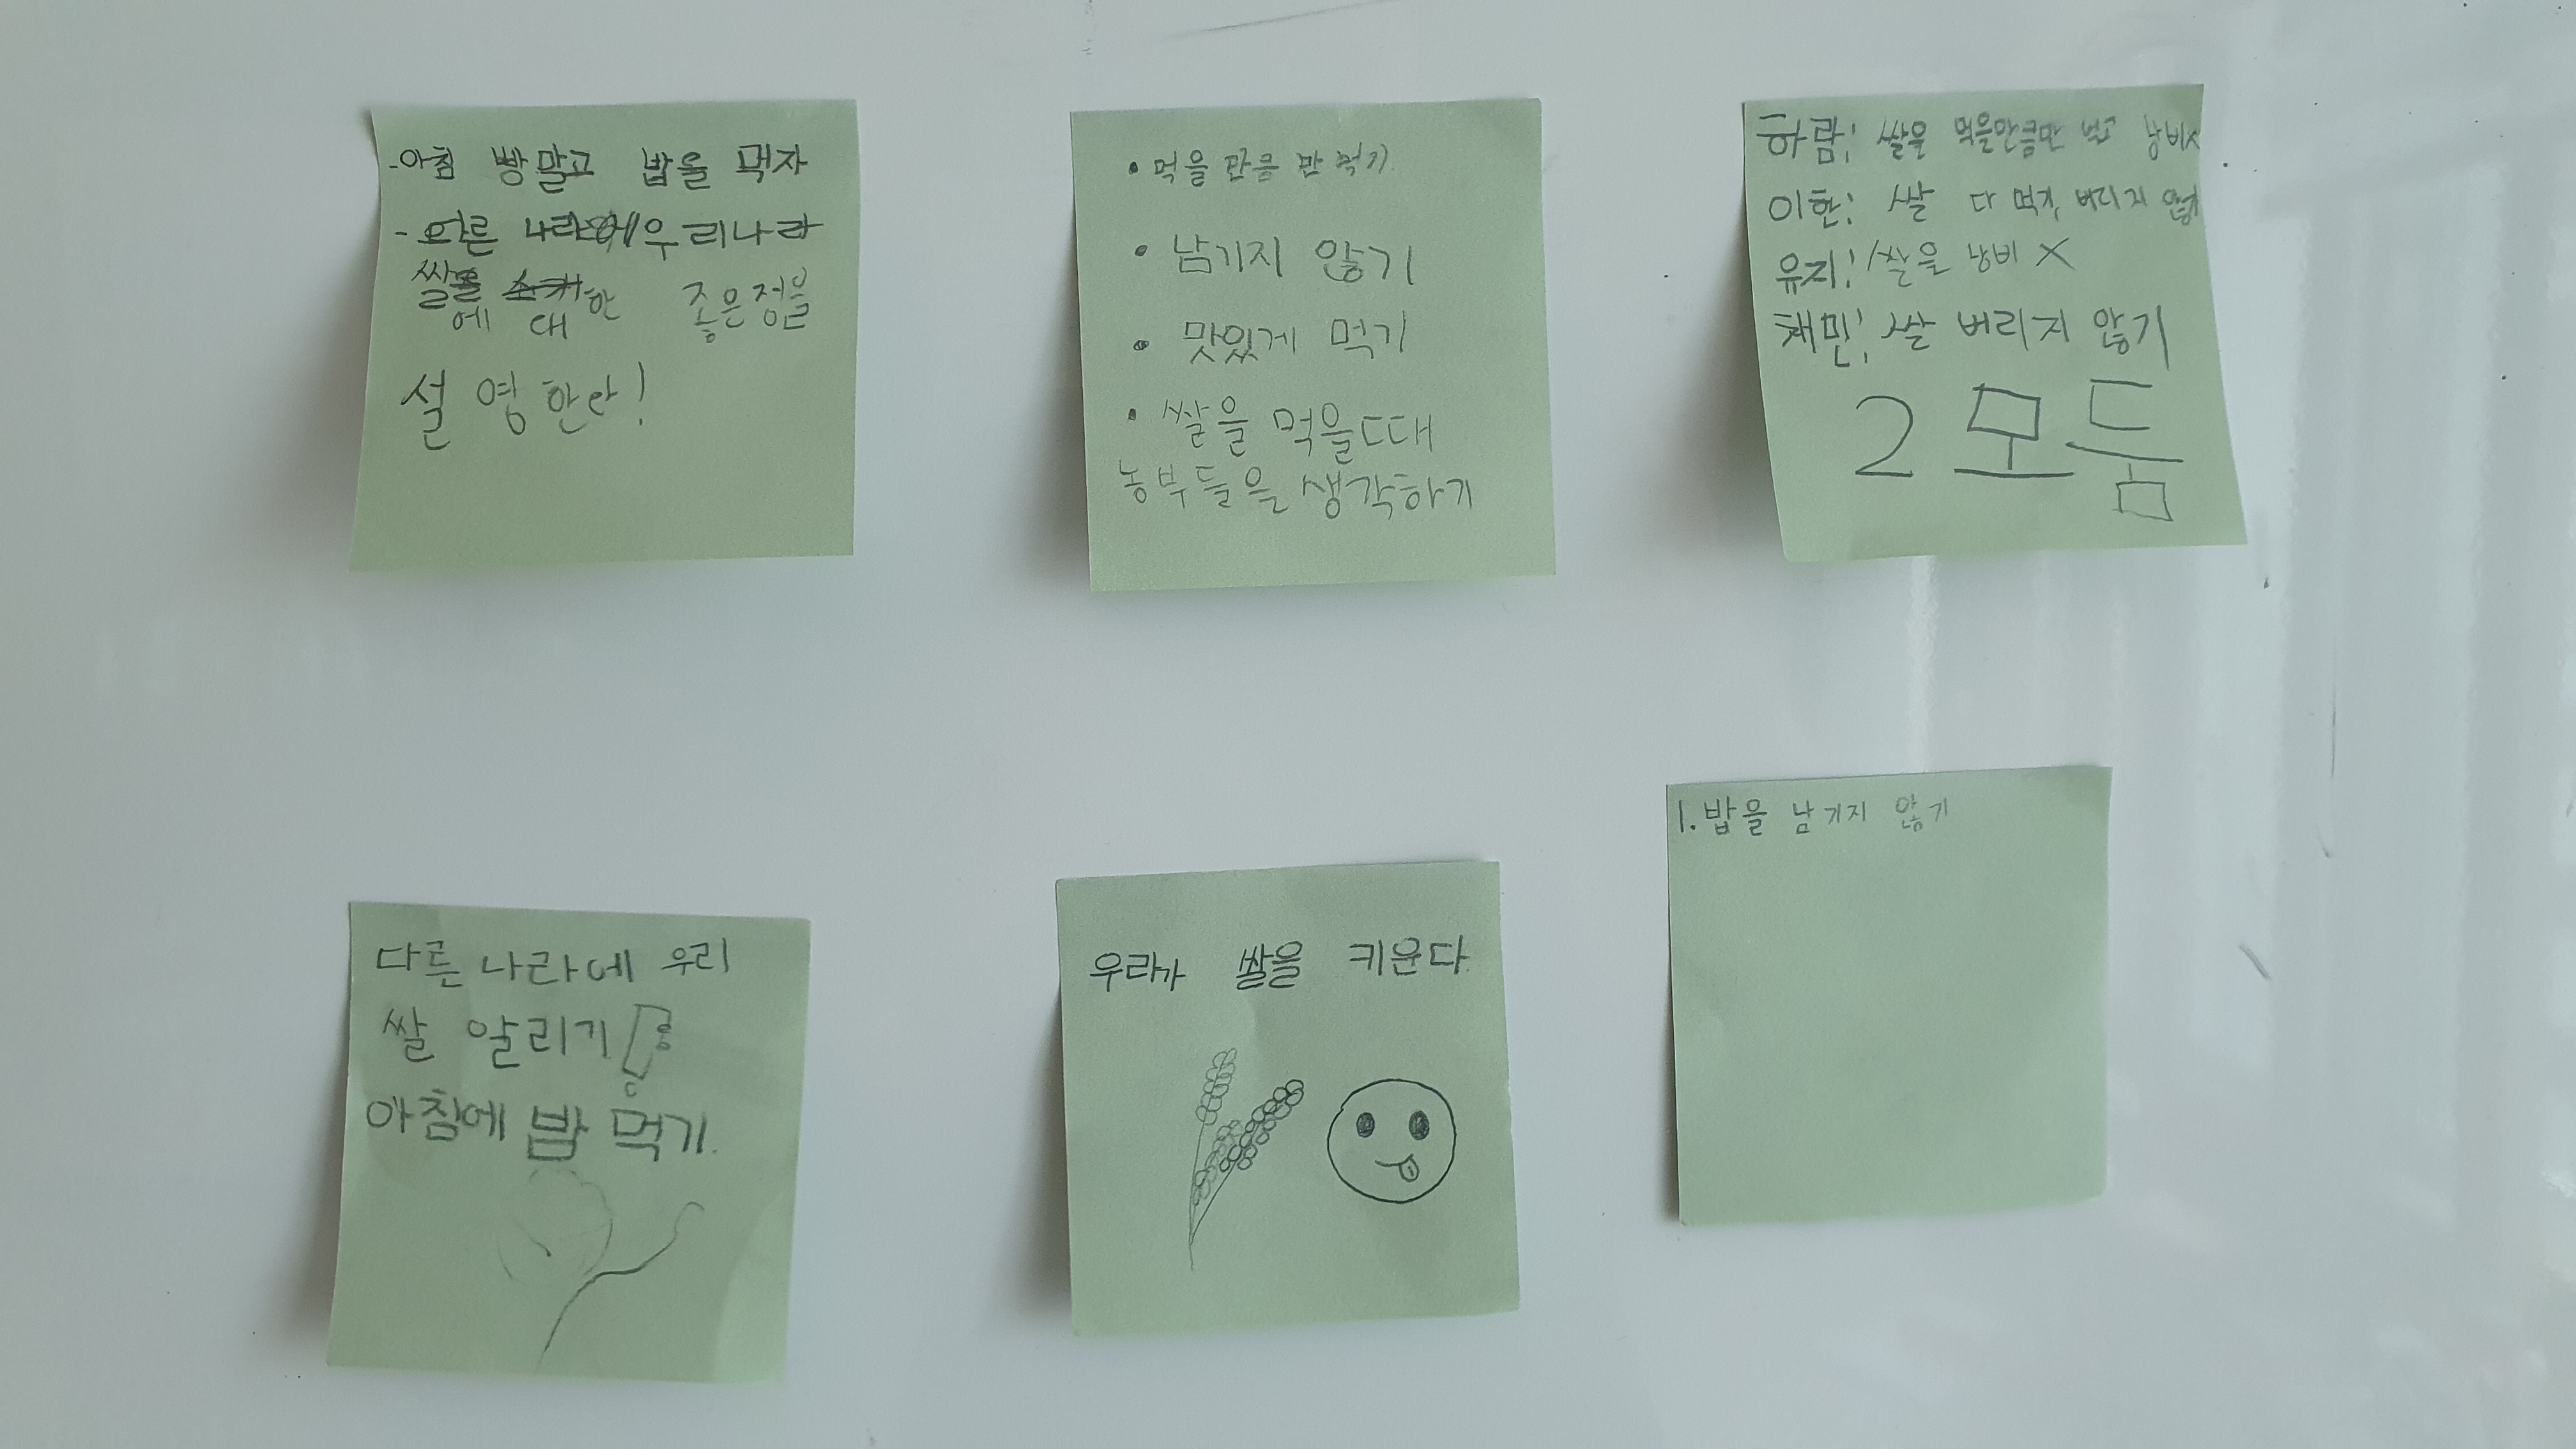 -아침 빵말고 밥을 먹자
-다른 나라에 우리나라
쌀에 대한 좋은점을
설명한다!
• 먹을 만큼만 먹기
• 남기지 않기
• 맛있게 먹기
• 쌀을 먹을때
농부들을 생각하기
하람: 쌀을 먹을만큼만 먹고 낭비x
이한: 쌀 다 먹기, 버리지 않기
유지: 쌀을 낭비 X
채민: 쌀 버리지 않기
2 모둠
다른 나라에 우리
쌀 알리기!
아침에 밥 먹기.
우리가 쌀을 키운다.
1. 밥을 남기지 않기